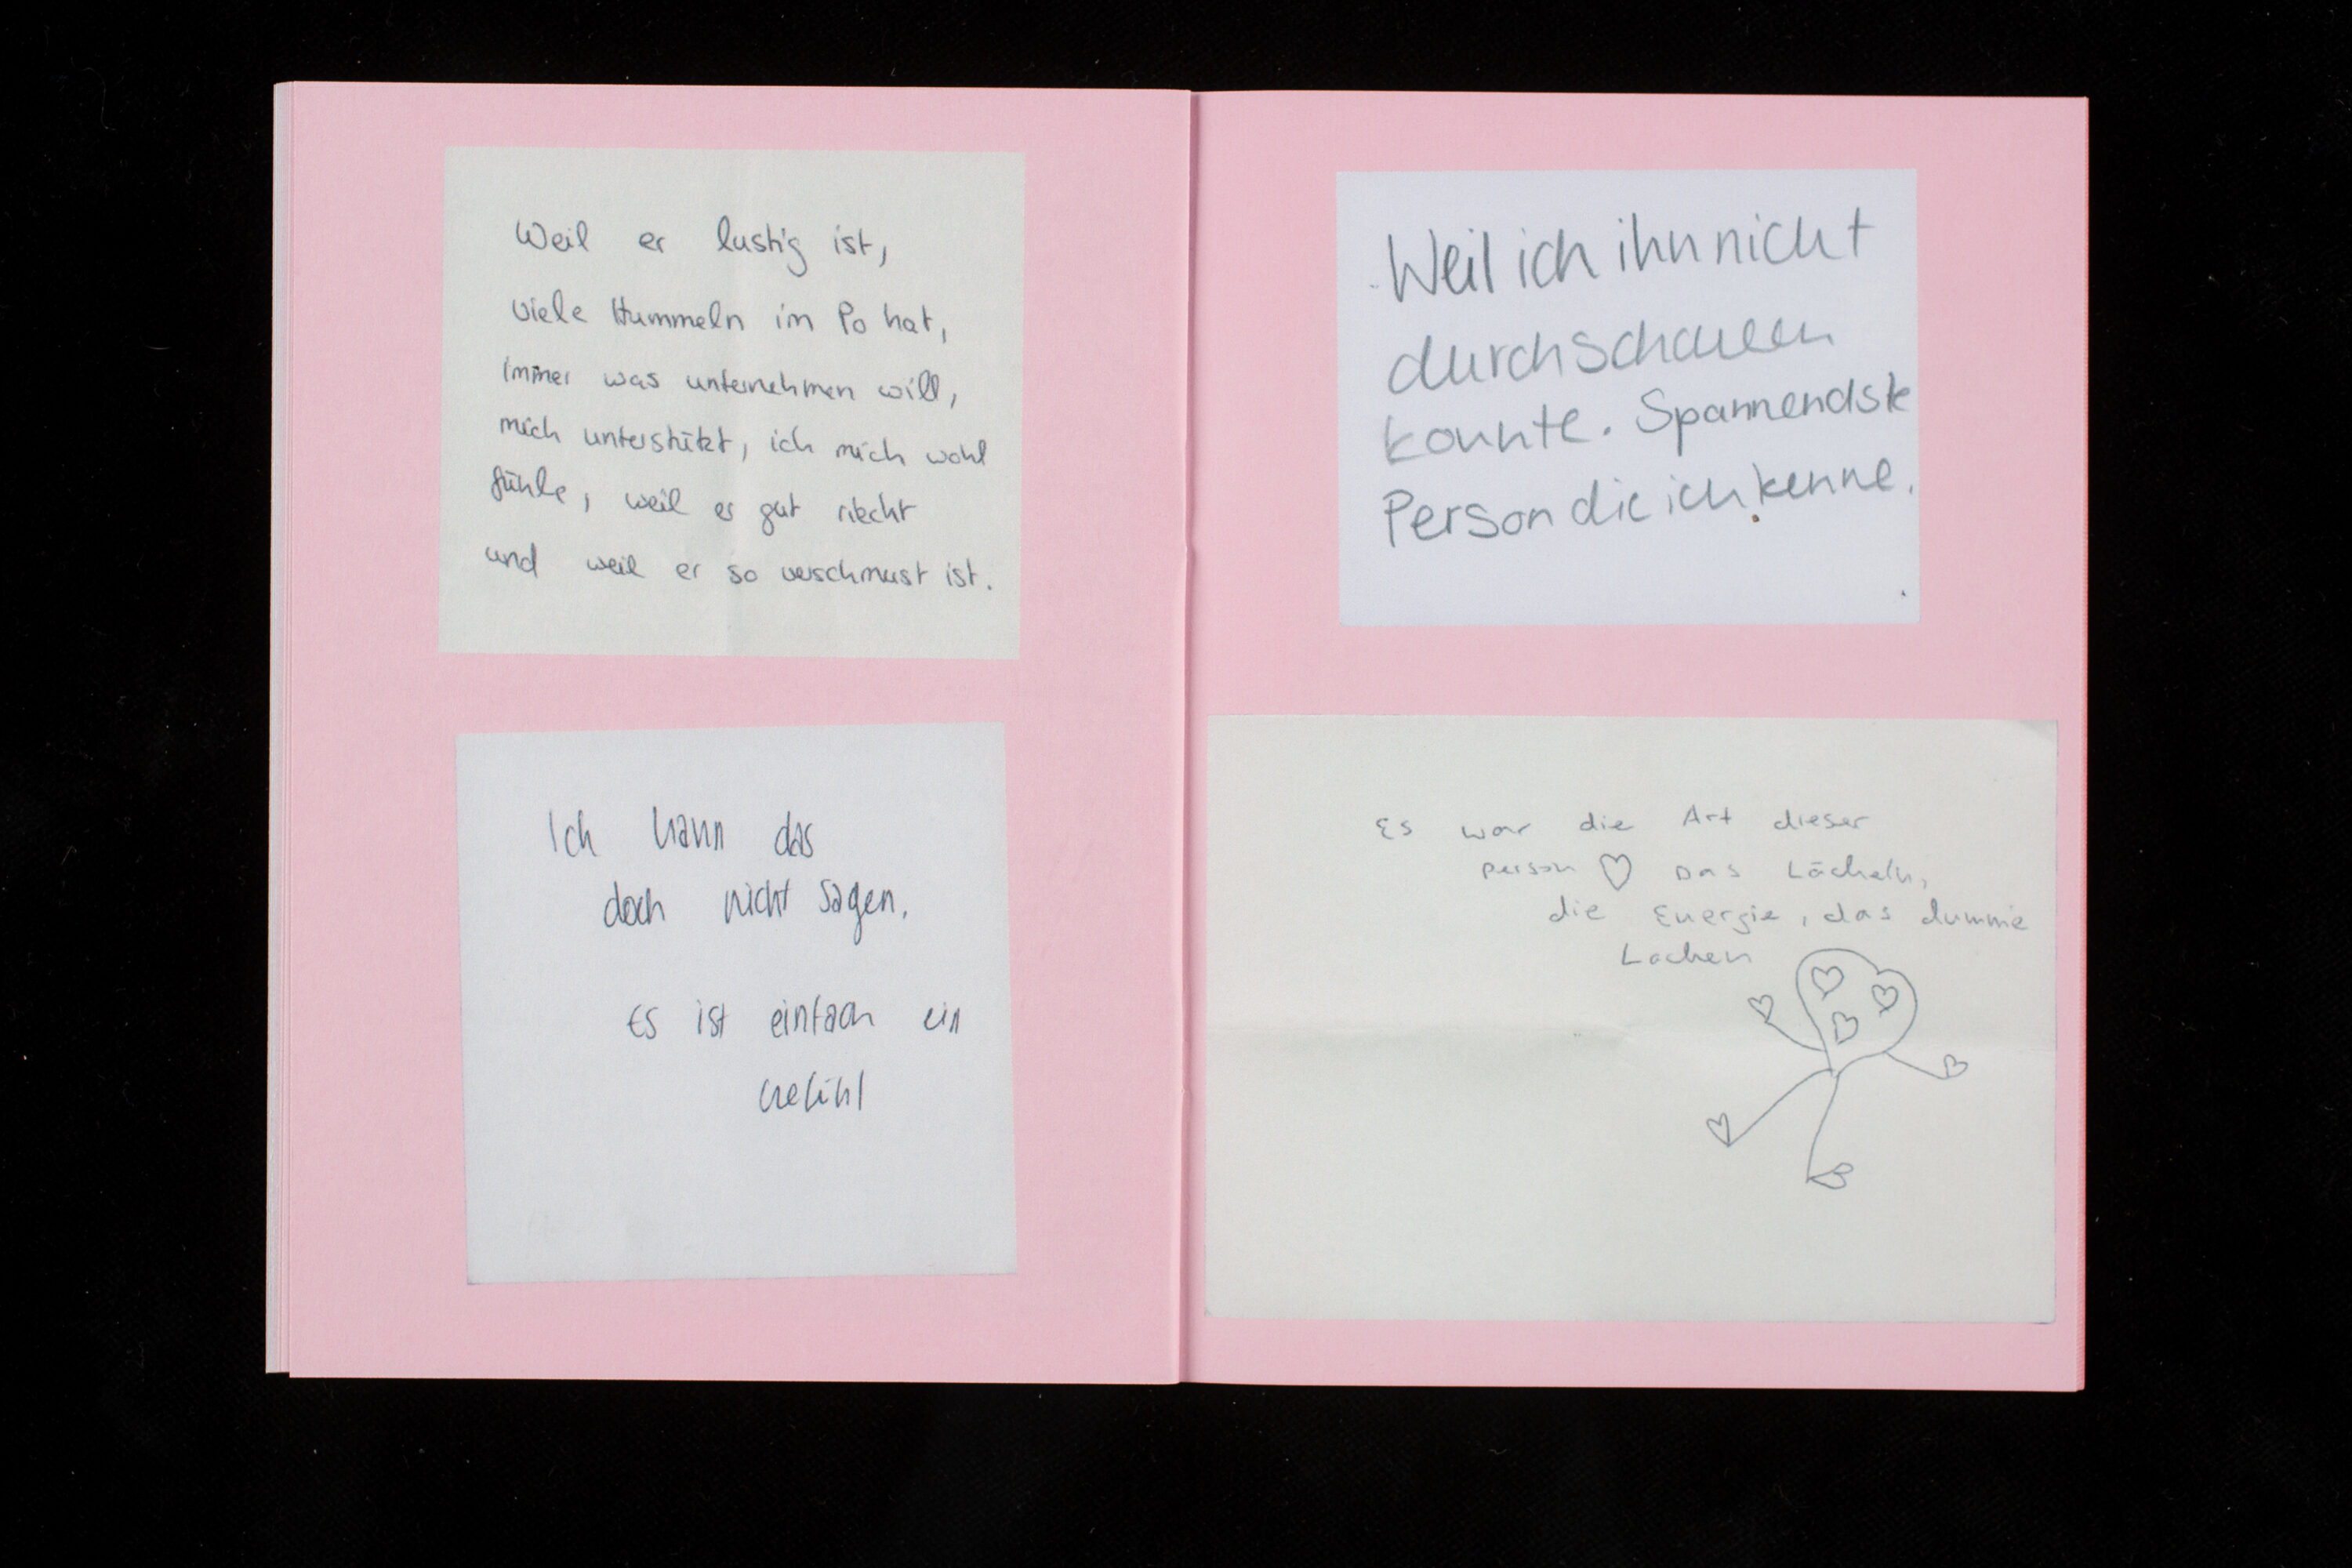 Weil er lustig ist,
viele Hummeln im Po hat,
immer was unternehmen will,
mich unterstützt, ich mich wohl
fühle, weil er gut riecht
und weil er so verschmust ist.
Ich kann das
doch nicht sagen.
Es ist einfach ein
Gefühl
Weil ich ihn nicht
durchschauen
konnte. Spannendste
Person die ich kenne.
Es war die Art dieser
person ♡ Das Lächeln,
die Energie, das dumme
Lachen